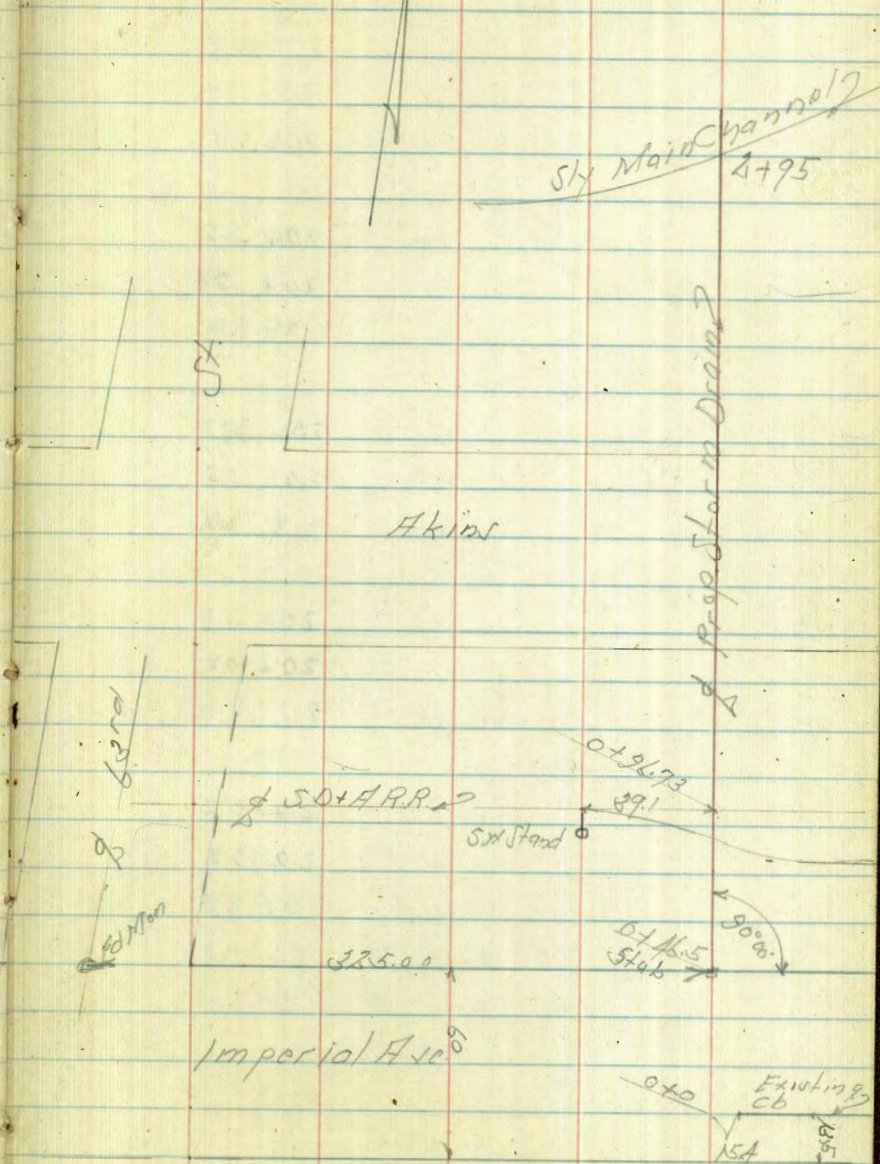 Sly Main Channel
2+95
St.
Akins
℄ Prop. Storm Drain
℄ 63rd
℄ S.D. & A R.R.
0+96.73
39.1
Sw Stand
Fd Mon
325.00
0+46.5
Stub
90°00'
Imperial Ave.
60
0+0
Existing
Cb